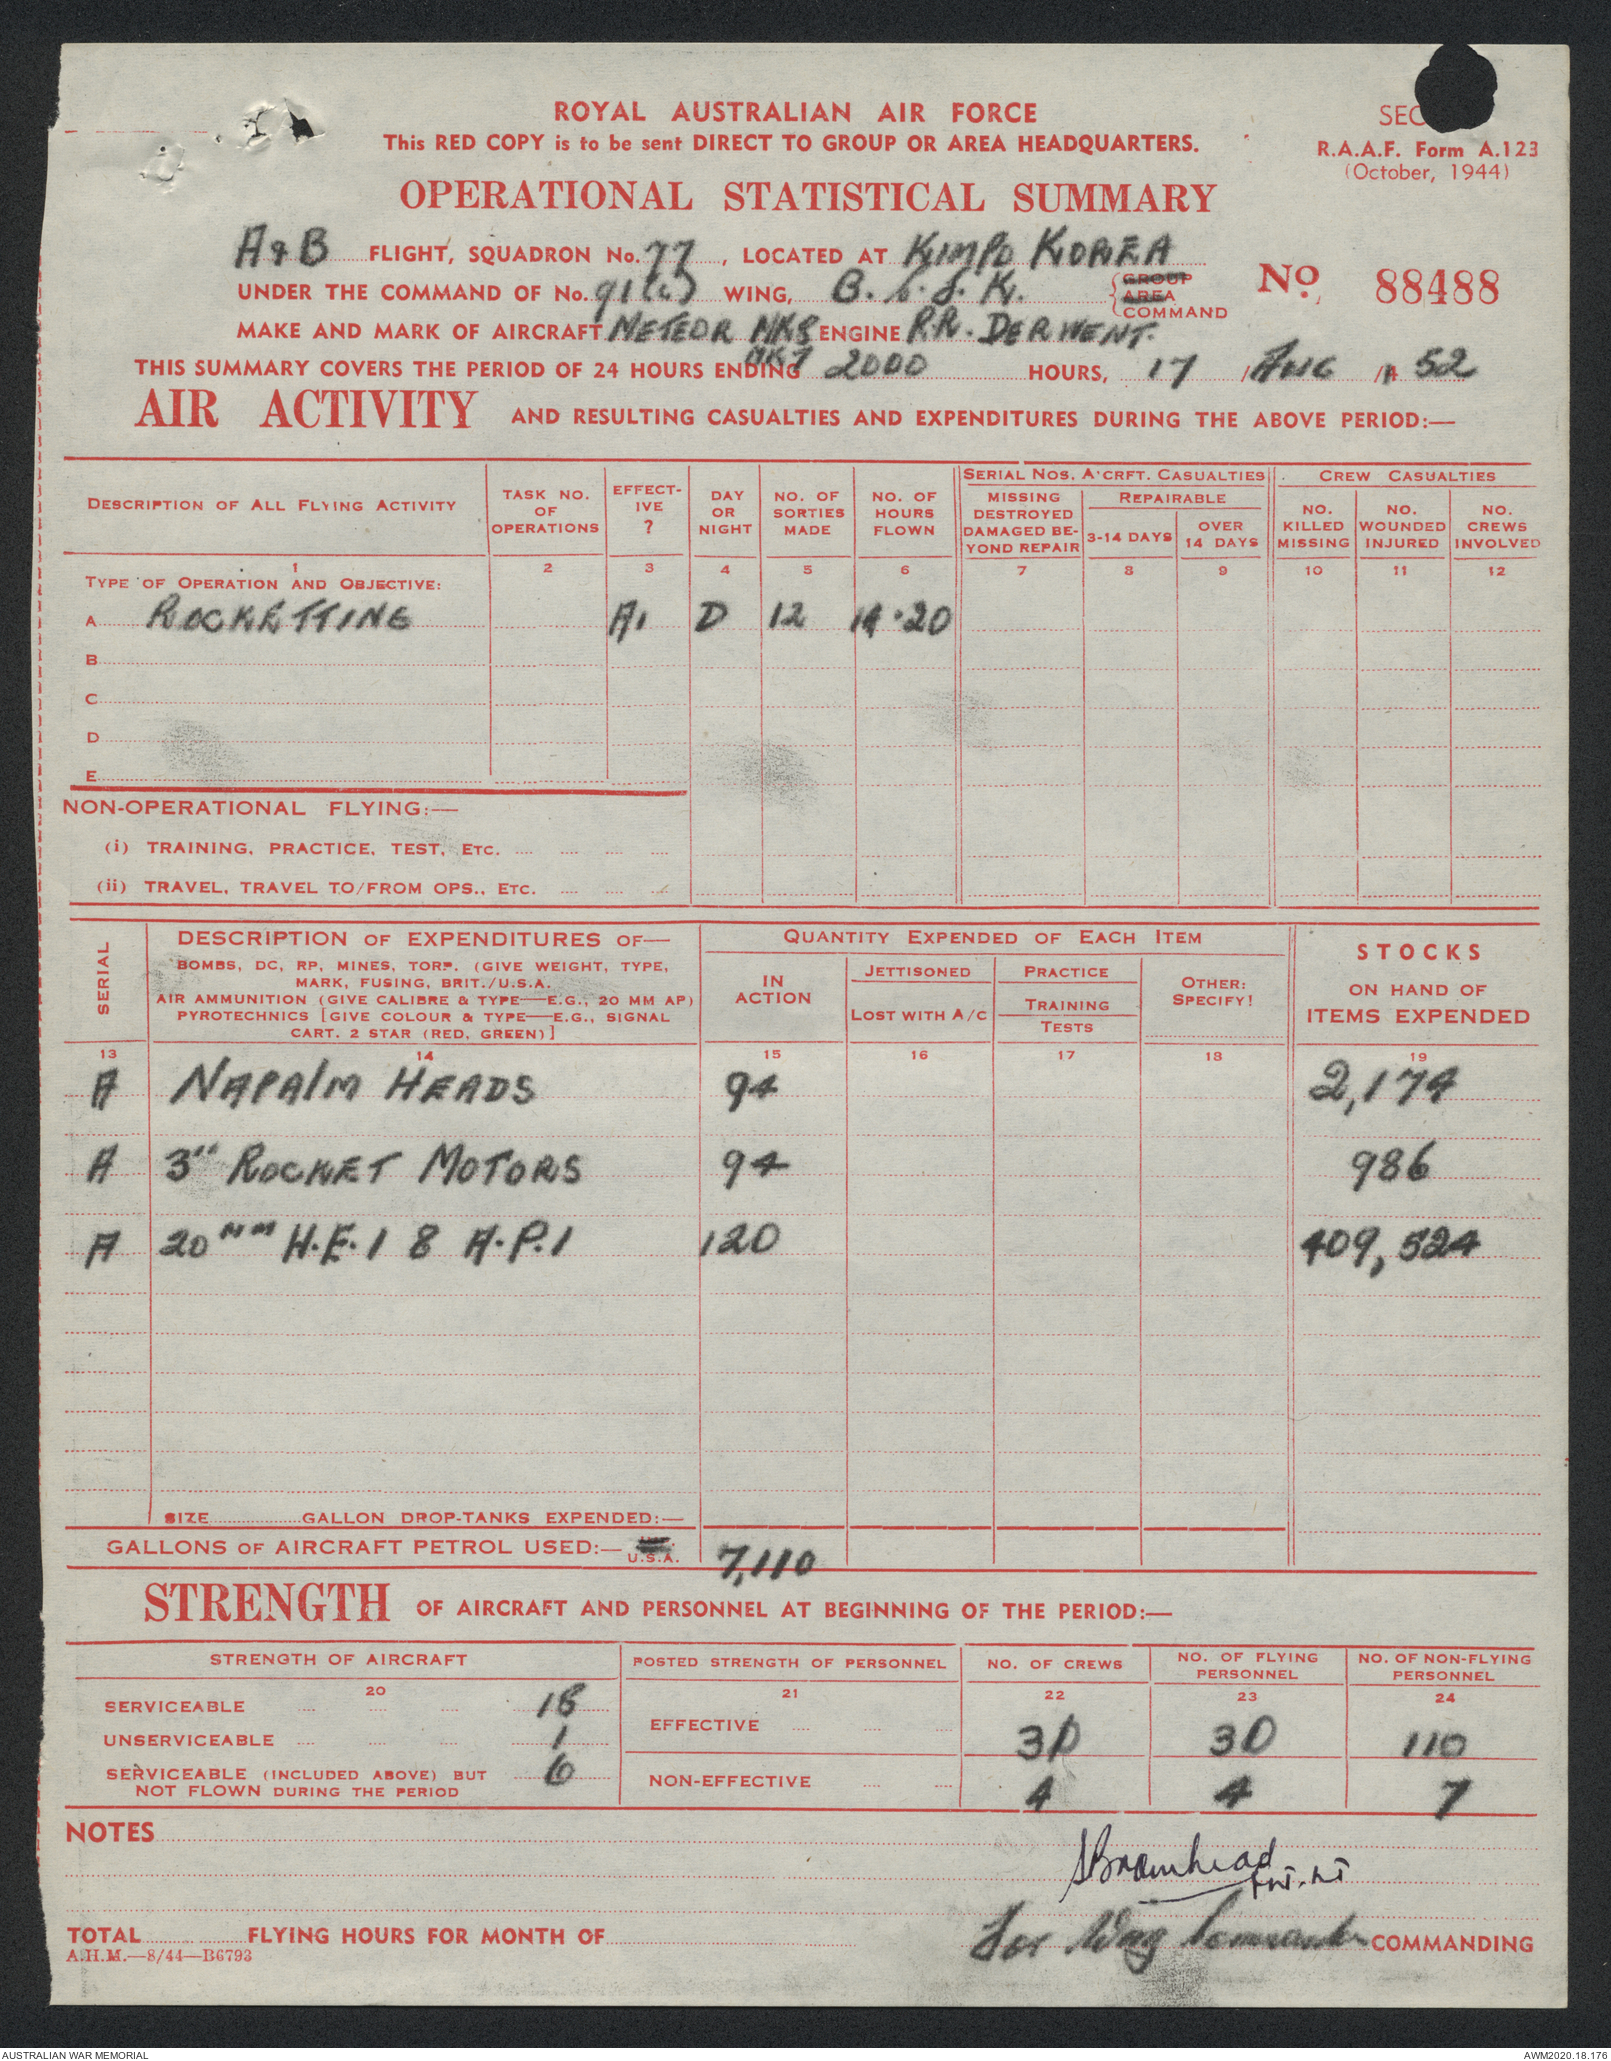 ROYAL AUSTRALIAN AIR FORCE
This RED COPY is to be sent DIRECT TO GROUP OR AREA HEADQUARTERS.
SEC
R.A.A.F. Form A.123
(October, 1944)
OPERATIONAL STATISTICAL SUMMARY
A & B FLIGHT, SQUADRON No. 77, LOCATED AT KIMPO KOREA
UNDER THE COMMAND OF No. 91(C) WING, B.C.J.K. GROUP AREA COMMAND
No. 88488
MAKE AND MARK OF AIRCRAFT METEOR MK8 ENGINE R.R. DERWENT.
MK7
THIS SUMMARY COVERS THE PERIOD OF 24 HOURS ENDING 2000 HOURS, 17 / AUG / 52
AIR ACTIVITY AND RESULTING CASUALTIES AND EXPENDITURES DURING THE ABOVE PERIOD:—
DESCRIPTION OF ALL FLYING ACTIVITY
TASK NO. OF OPERATIONS
EFFECTIVE ?
DAY OR NIGHT
NO. OF SORTIES MADE
NO. OF HOURS FLOWN
SERIAL NOS. A'CRFT. CASUALTIES
MISSING DESTROYED DAMAGED BEYOND REPAIR
REPAIRABLE
3-14 DAYS
OVER 14 DAYS
CREW CASUALTIES
NO. KILLED MISSING
NO. WOUNDED INJURED
NO. CREWS INVOLVED
1 2 3 4 5 6 7 8 9 10 11 12
TYPE OF OPERATION AND OBJECTIVE:
A ROCKETTING A1 D 12 14.20
B
C
D
E
NON-OPERATIONAL FLYING:—
(i) TRAINING, PRACTICE, TEST, ETC.
(ii) TRAVEL, TRAVEL TO/FROM OPS., ETC.
SERIAL
DESCRIPTION OF EXPENDITURES OF—
BOMBS, DC, RP, MINES, TORP. (GIVE WEIGHT, TYPE,
MARK, FUSING, BRIT./U.S.A.
AIR AMMUNITION (GIVE CALIBRE & TYPE—E.G., 20 MM AP)
PYROTECHNICS [GIVE COLOUR & TYPE—E.G., SIGNAL
CART. 2 STAR (RED, GREEN)]
QUANTITY EXPENDED OF EACH ITEM
IN ACTION
JETTISONED
LOST WITH A/C
PRACTICE
TRAINING
TESTS
OTHER: SPECIFY!
STOCKS
ON HAND OF
ITEMS EXPENDED
13 14 15 16 17 18 19
A NAPALM HEADS 94 2,174
A 3" ROCKET MOTORS 94 986
A 20MM H.E.1 & A.P.1 120 409,524
SIZE GALLON DROP-TANKS EXPENDED:—
GALLONS OF AIRCRAFT PETROL USED:— U.S.A. 7,110
STRENGTH OF AIRCRAFT AND PERSONNEL AT BEGINNING OF THE PERIOD:—
STRENGTH OF AIRCRAFT
POSTED STRENGTH OF PERSONNEL
NO. OF CREWS
NO. OF FLYING PERSONNEL
NO. OF NON-FLYING PERSONNEL
20 21 22 23 24
SERVICEABLE 18
UNSERVICEABLE 1
SERVICEABLE (INCLUDED ABOVE) BUT NOT FLOWN DURING THE PERIOD 6
EFFECTIVE 30 30 110
NON-EFFECTIVE 4 4 7
NOTES
SBromhead
FLT. LT
TOTAL FLYING HOURS FOR MONTH OF
For Wing Commander COMMANDING
A.H.M.—8/44—B6793
AUSTRALIAN WAR MEMORIAL
AWM2020.18.176